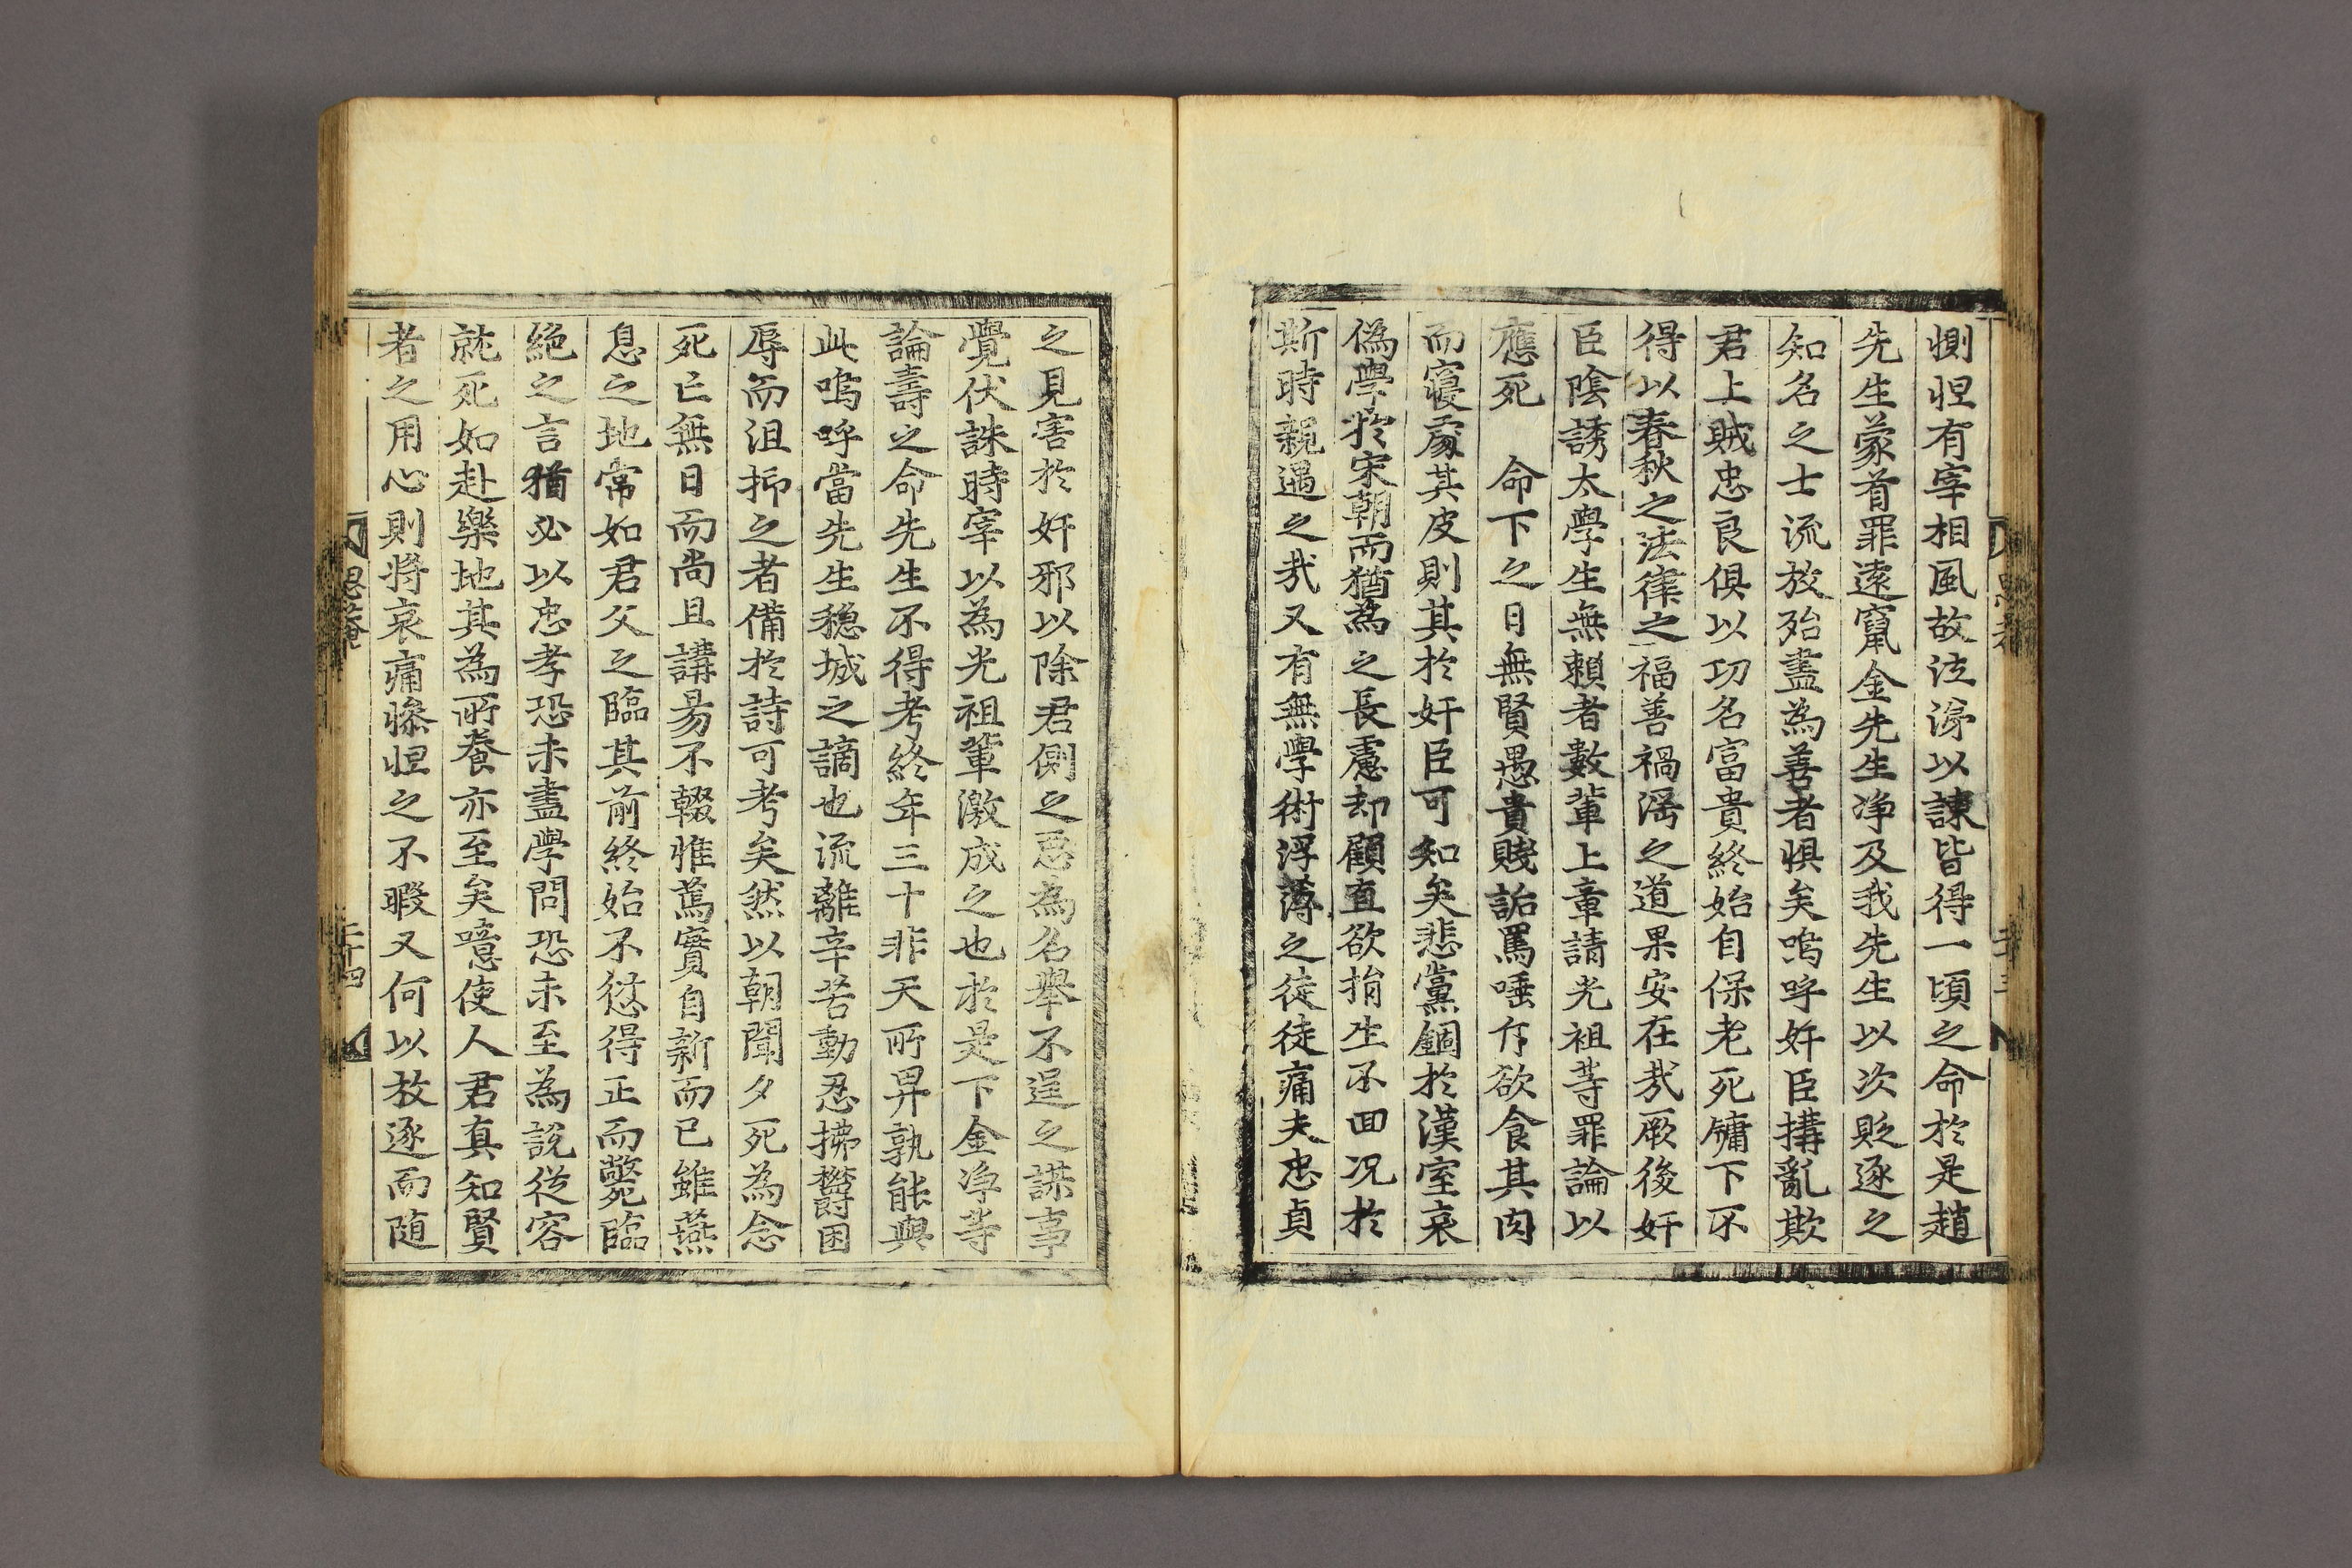 惻怛有宰相風故泣涕以諫皆得一頃之命於是趙
先生蒙首罪遠竄金先生净及我先生以次貶逐之
知名之士流放殆盡為善者惧矣嗚呼奸臣搆亂欺
君上賊忠良俱以功名富貴終始自保老死牗下不
得以春秋之法律之福善禍滛之道果安在㢤厥後奸
臣陰誘太學生無賴者數軰上章請光祖等罪論以
應死　命下之日無賢愚貴賤詬罵唾斥欲食其肉
而寢處其皮則其於奸臣可知矣悲黨錮於漢室哀
偽學於宋朝而猶為之長慮却顧直欲捐生不回况於
斯時親遇之㢤又有無學術浮薄之徒徒痛夫忠貞
之見害於奸邪以除君側之惡為名舉不逞之謀事
覺伏誅時宰以為光祖軰激成之也於是下金净等
論壽之命先生不得考終年三十非天所畀孰能與
此嗚呼當先生穏城之謫也流離辛苦動忍拂欝困
辱而沮抑之者備於詩可考矣然以朝聞夕死為念
死亡無日而尚且講昜不輟惟篤實自新而已雖燕
息之地常如君父之臨其前終始不愆得正而斃臨
絶之言猶必以忠孝恐未盡學問恐未至為說從容
就死如赴樂地其為所養亦至矣噫使人君真知賢
者之用心則將哀痛慘怛之不暇又何以放逐而随
思菴
二十四